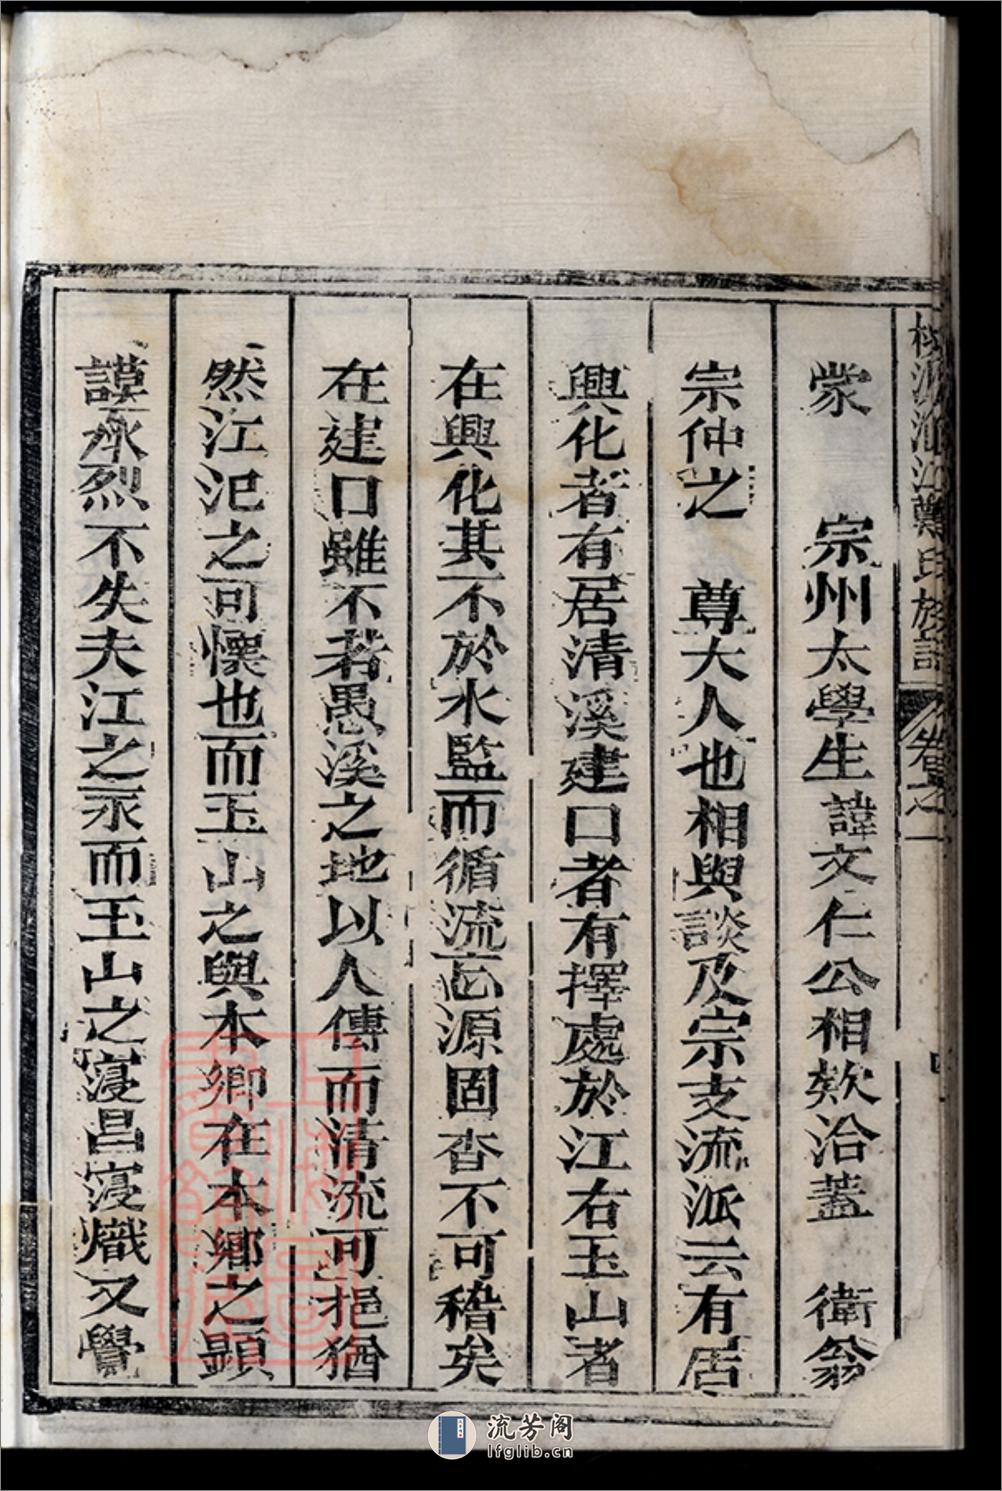 氏族譜 卷之一
蒙 宗州太學生諱文仁公相欵洽蓋 衛翁
宗仲之 尊大人也相與談及宗支流派云有居
興化者有居清溪建口者有擇處於江右玉山者
在興化其不於水監而循流忘源固杳不可稽矣
在建口雖不若愚溪之地以人傳而清流可挹猶
然江汜之可懷也而玉山之與本鄉在本鄉之顯
謨承烈不失夫江之永而玉山之寖昌寖熾又譽
流芳阁
lfglib.cn